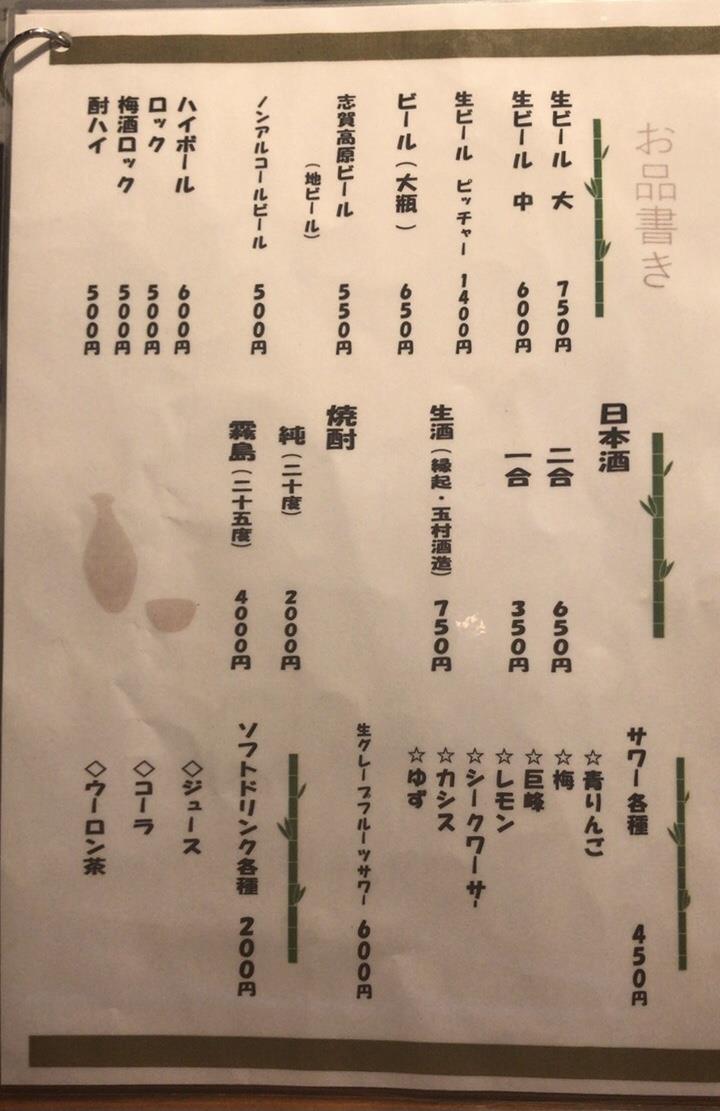 お品書き
生ビール 大 750円
生ビール 中 600円
生ビール ピッチャー 1400円
ビール(大瓶) 650円
志賀高原ビール 550円
(地ビール)
ノンアルコールビール 500円
ハイボール 600円
ロック 500円
梅酒ロック 500円
酎ハイ 500円
日本酒
二合 650円
一合 350円
生酒(縁起・玉村酒造) 750円
焼酎
純(二十度) 2000円
霧島(二十五度) 4000円
サワー各種 450円
☆青りんご
☆梅
☆巨峰
☆レモン
☆シークワーサー
☆カシス
☆ゆず
生グレープフルーツサワー 600円
ソフトドリンク各種 200円
◇ジュース
◇コーラ
◇ウーロン茶